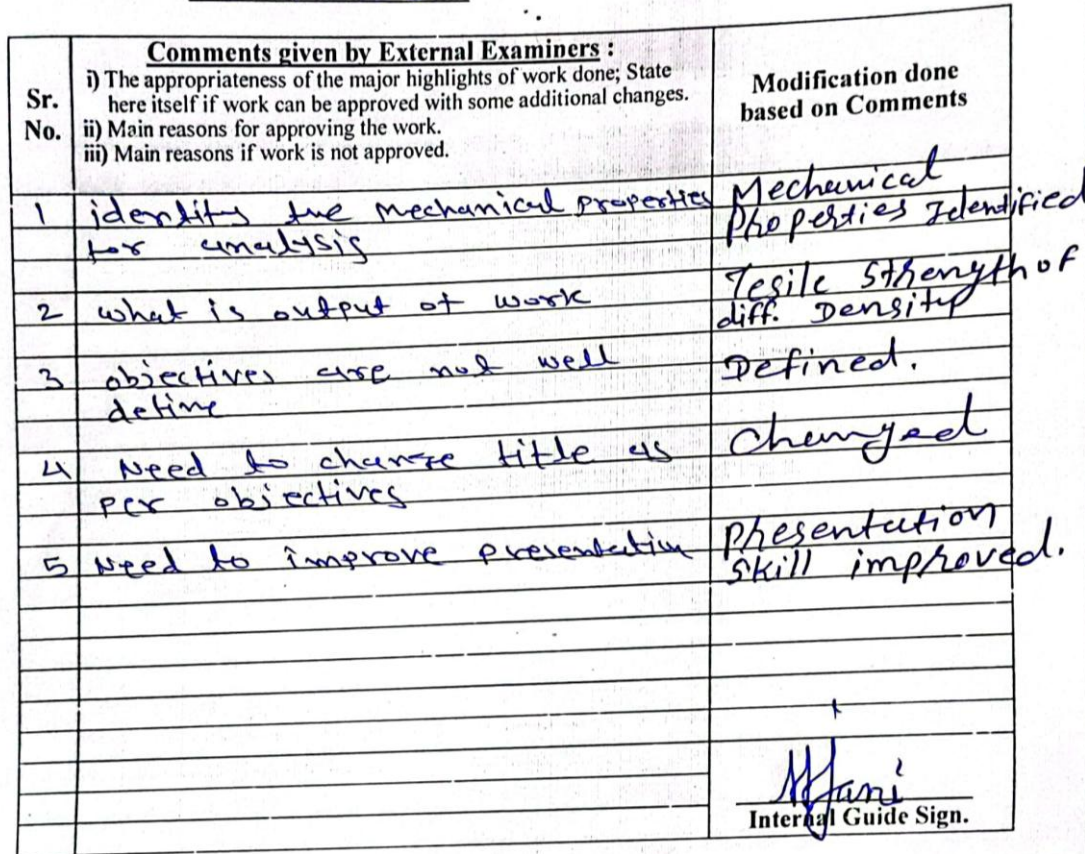 Sr.
No.
Comments given by External Examiners :
i) The appropriateness of the major highlights of work done; State
here itself if work can be approved with some additional changes.
ii) Main reasons for approving the work.
iii) Main reasons if work is not approved.
Modification done
based on Comments
1 identity the mechanical properties
for analysis
Mechanical
Properties Identified
2 what is output of work
Tesile Strength of
diff. Density
3 objectives are not well
define
Defined.
4 Need to change title as
per objectives
Changed
5 Need to improve presentation
Presentation
Skill improved.
Internal Guide Sign.